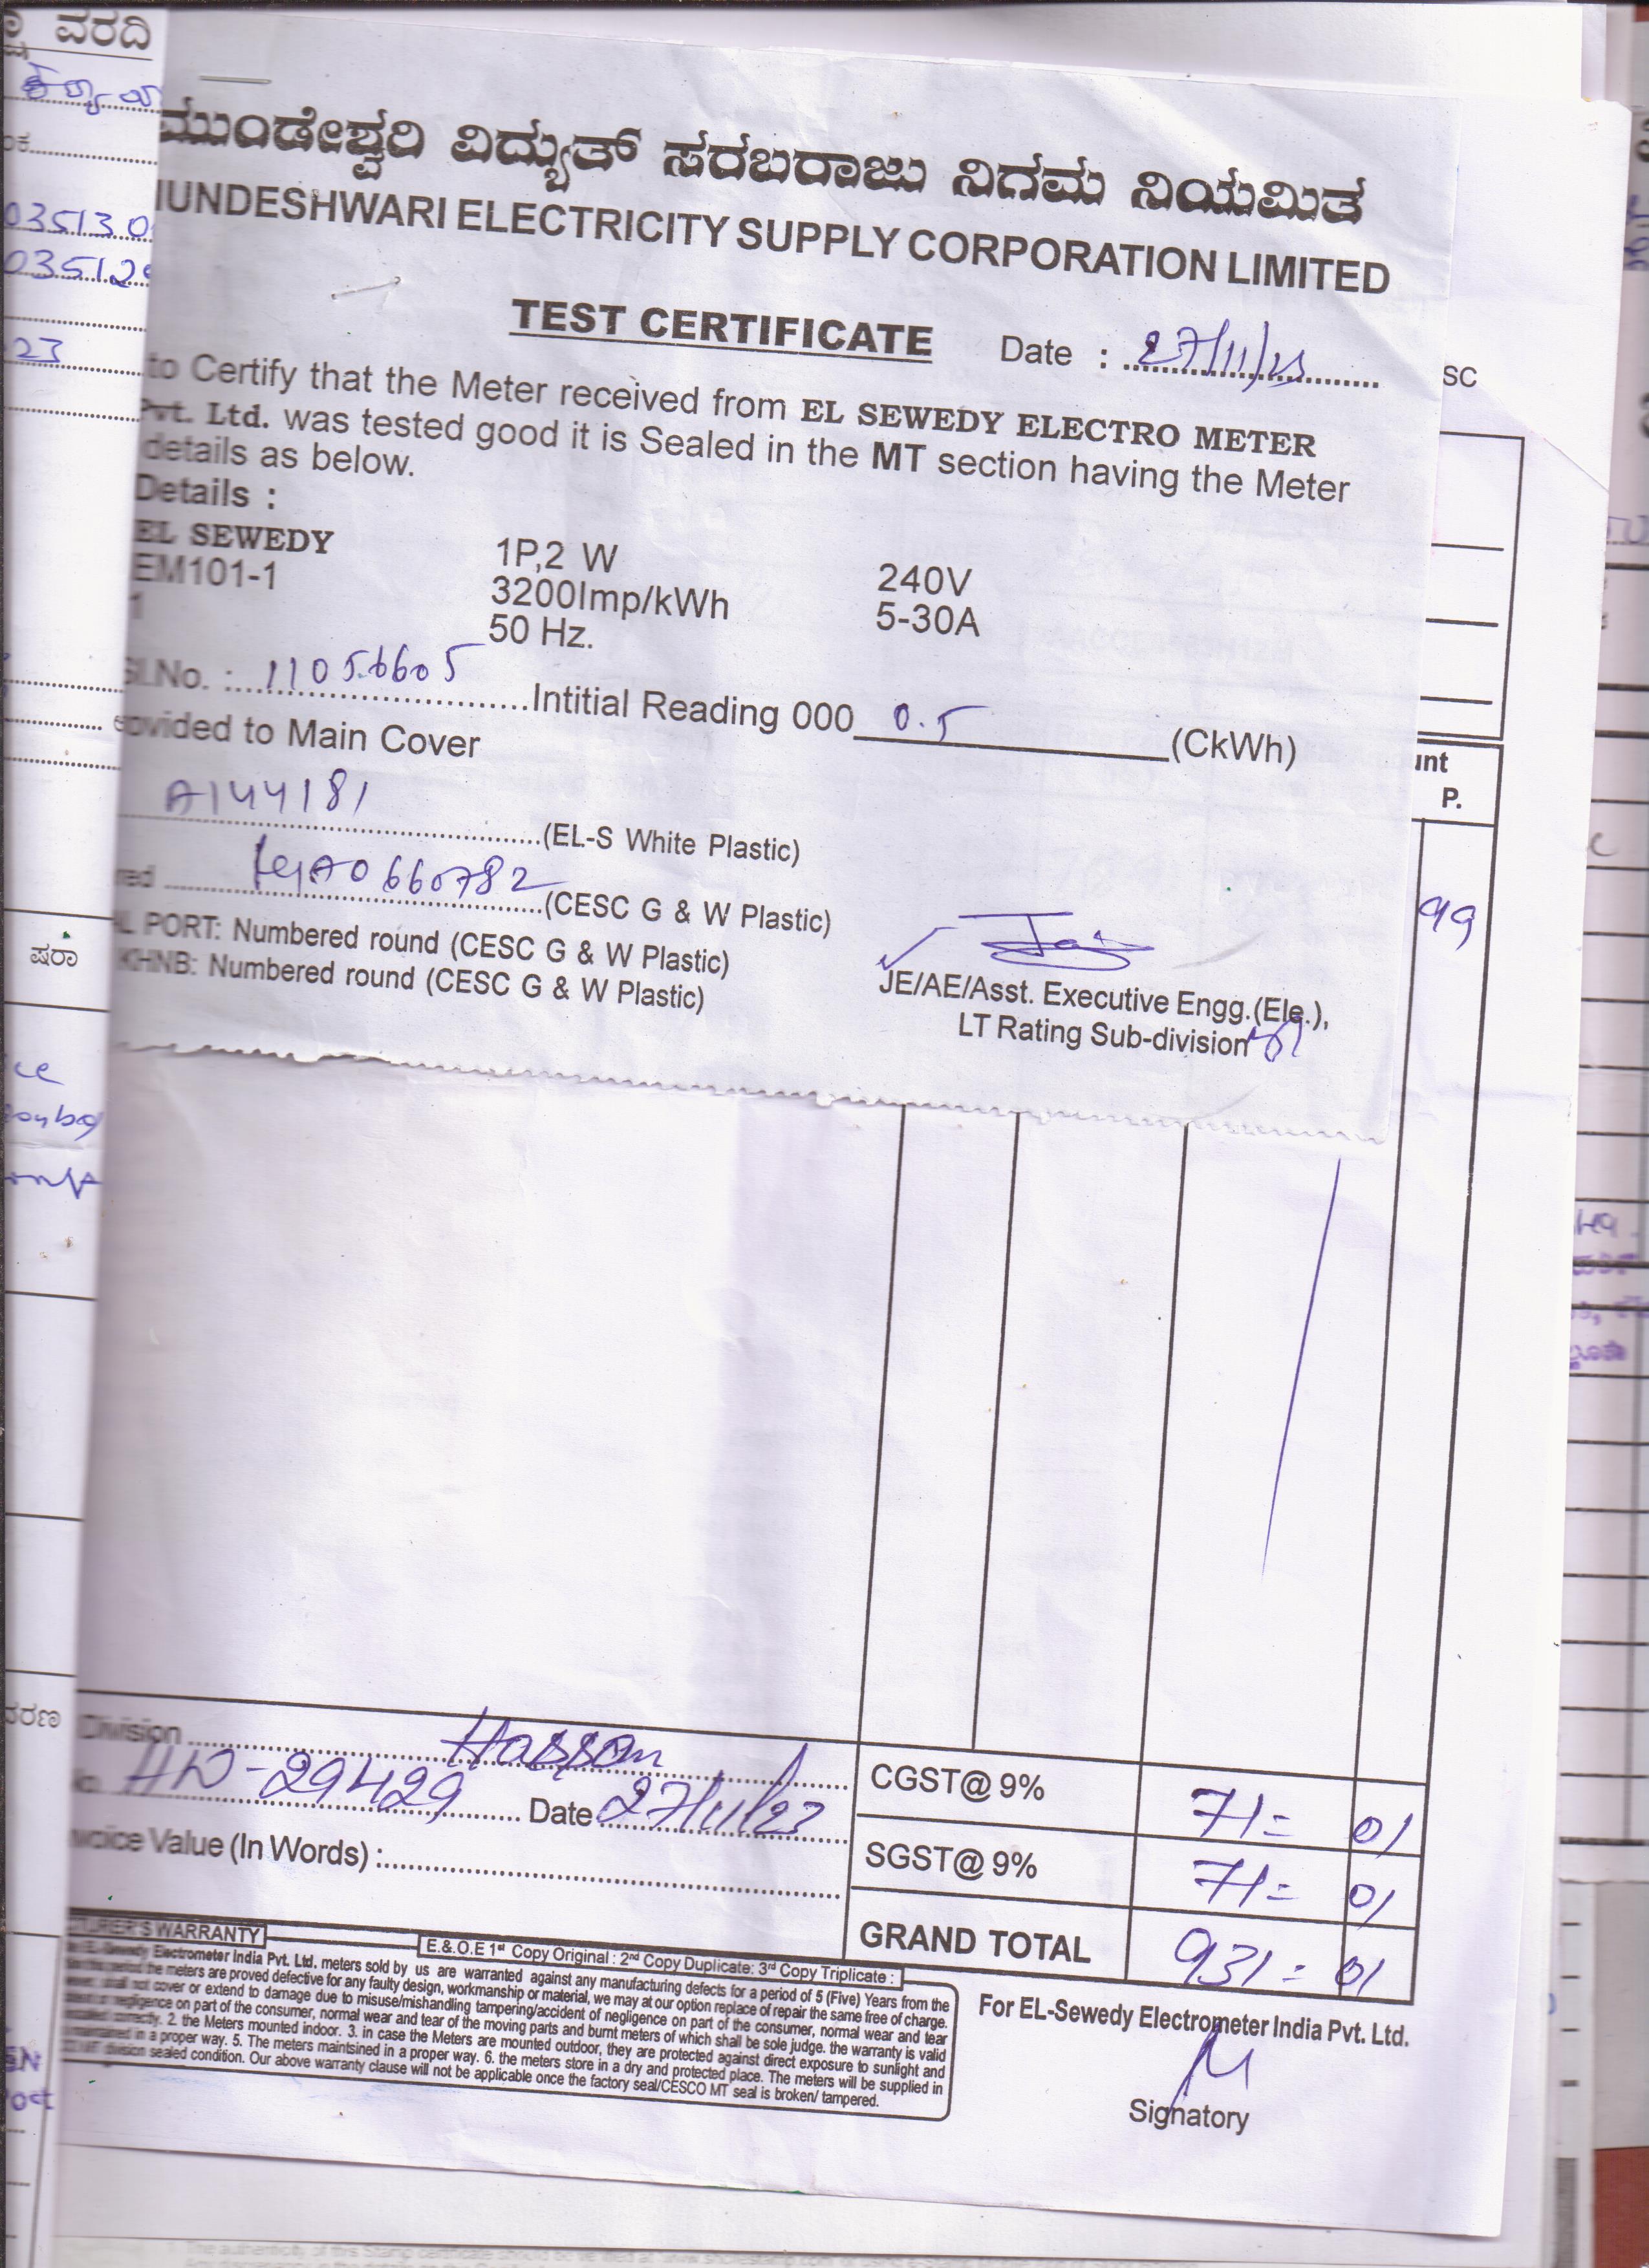 ವರದಿ
ಮುಂಡೇಶ್ವರಿ ವಿದ್ಯುತ್ ಸರಬರಾಜು ನಿಗಮ ನಿಯಮಿತ
UNDESHWARI ELECTRICITY SUPPLY CORPORATION LIMITED
TEST CERTIFICATE Date : 27/11/23
SC
to Certify that the Meter received from EL SEWEDY ELECTRO METER
Pvt. Ltd. was tested good it is Sealed in the MT section having the Meter
details as below.
Details :
EL SEWEDY 1P,2 W 240V
EM101-1 3200Imp/kWh 5-30A
1 50 Hz.
Sl.No. : 11056605 Intitial Reading 000 0.5 (CkWh)
ovided to Main Cover
A144181 (EL-S White Plastic)
red 0660782 (CESC G & W Plastic)
AL PORT: Numbered round (CESC G & W Plastic)
KHNB: Numbered round (CESC G & W Plastic)
JE/AE/Asst. Executive Engg.(Ele.),
LT Rating Sub-division
035130
03512
23
unt
P.
99
ಷರಾ
Division Hassan
No. HN-29429 Date 27/11/23
nvoice Value (In Words) :
CGST@ 9% 71= 01
SGST@ 9% 71= 01
GRAND TOTAL 931= 01
TURER'S WARRANTY
E.&.O.E 1st Copy Original : 2nd Copy Duplicate: 3rd Copy Triplicate :
EL-Sewedy Electrometer India Pvt. Ltd. meters sold by us are warranted against any manufacturing defects for a period of 5 (Five) Years from the
this period the meters are proved defective for any faulty design, workmanship or material, we may at our option replace of repair the same free of charge.
shall not cover or extend to damage due to misuse/mishandling tampering/accident of negligence on part of the consumer, normal wear and tear
or negligence on part of the consumer, normal wear and tear of the moving parts and burnt meters of which shall be sole judge. the warranty is valid
correctly. 2. the Meters mounted indoor. 3. in case the Meters are mounted outdoor, they are protected against direct exposure to sunlight and
in a proper way. 5. The meters maintsined in a proper way. 6. the meters store in a dry and protected place. The meters will be supplied in
MT division sealed condition. Our above warranty clause will not be applicable once the factory seal/CESCO MT seal is broken/ tampered.
For EL-Sewedy Electrometer India Pvt. Ltd.
Signatory